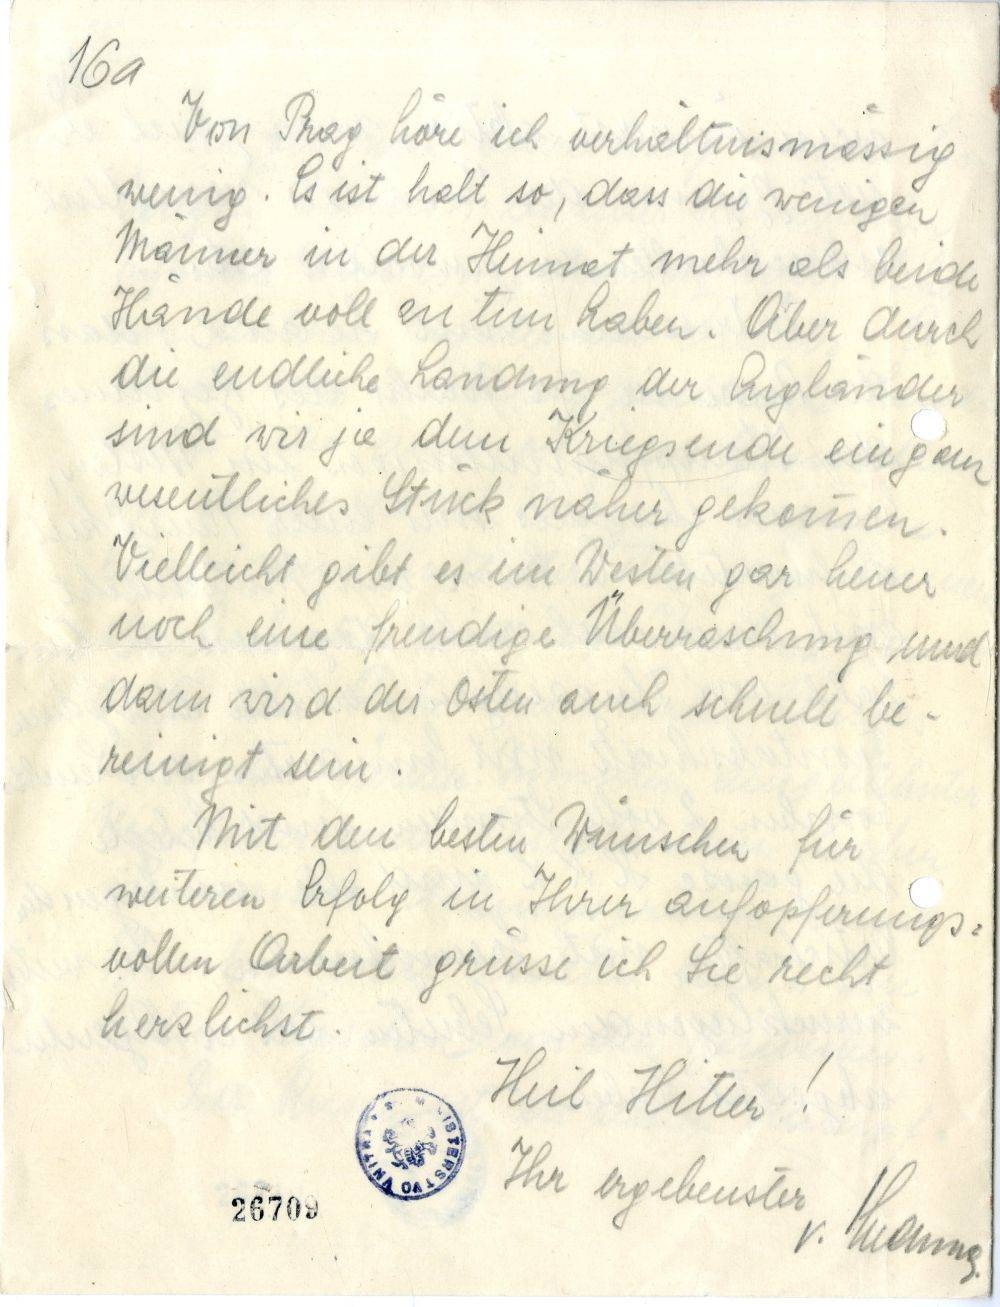 16a
Von Prag höre ich verhältnismässig
wenig. Es ist halt so, dass die wenigen
Männer in der Heimat mehr als beide
Hände voll zu tun haben. Aber durch
die endliche Landung der Engländer
sind wir ja dem Kriegsende ein ganz
wesentliches Stück näher gekom̄en.
Vielleicht gibt es im Westen gar heuer
noch eine freudige Überraschung und
dann wird der Osten auch schnell be-
reinigt sein.
Mit den besten Wünschen für
weiteren Erfolg in Ihrer aufopferungs=
vollen Arbeit grüsse ich Sie recht
herzlichst.
Heil Hitler!
Ihr ergebenster
v.
MINISTERSTVO VNITRA
26709